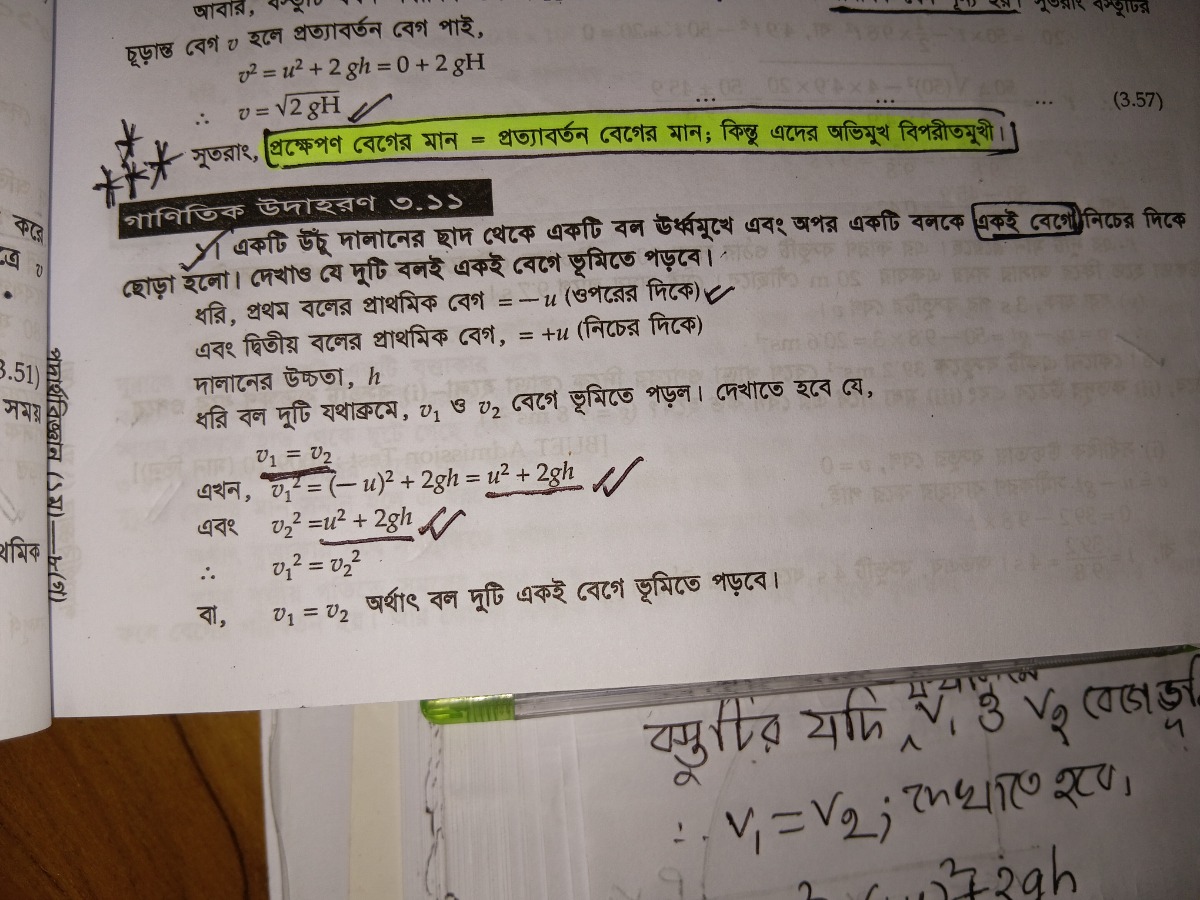 আবার,
চূড়ান্ত বেগ v হলে প্রত্যাবর্তন বেগ পাই,
v² = u² + 2 gh = 0 + 2 gH
∴ v = √2 gH ... ... ... (3.57)
সুতরাং, প্রক্ষেপণ বেগের মান = প্রত্যাবর্তন বেগের মান; কিন্তু এদের অভিমুখ বিপরীতমুখী।
গাণিতিক উদাহরণ ৩.১১
১। একটি উঁচু দালানের ছাদ থেকে একটি বল উর্ধ্বমুখে এবং অপর একটি বলকে একই বেগে নিচের দিকে
ছোড়া হলো। দেখাও যে দুটি বলই একই বেগে ভূমিতে পড়বে।
ধরি, প্রথম বলের প্রাথমিক বেগ = – u (ওপরের দিকে)
এবং দ্বিতীয় বলের প্রাথমিক বেগ, = +u (নিচের দিকে)
দালানের উচ্চতা, h
ধরি বল দুটি যথাক্রমে, v₁ ও v₂ বেগে ভূমিতে পড়ল। দেখাতে হবে যে,
v₁ = v₂
এখন, v₁² = (– u)² + 2gh = u² + 2gh
এবং v₂² = u² + 2gh
∴ v₁² = v₂²
বা, v₁ = v₂ অর্থাৎ বল দুটি একই বেগে ভূমিতে পড়বে।
করে
v
3.51)
সময়
থমিক
পদার্থবিজ্ঞান (১ম)
বস্তুটির যদি v₁ ও v₂ বেগে
∴ v₁ = v₂; দেখাতে হবে।
+2gh